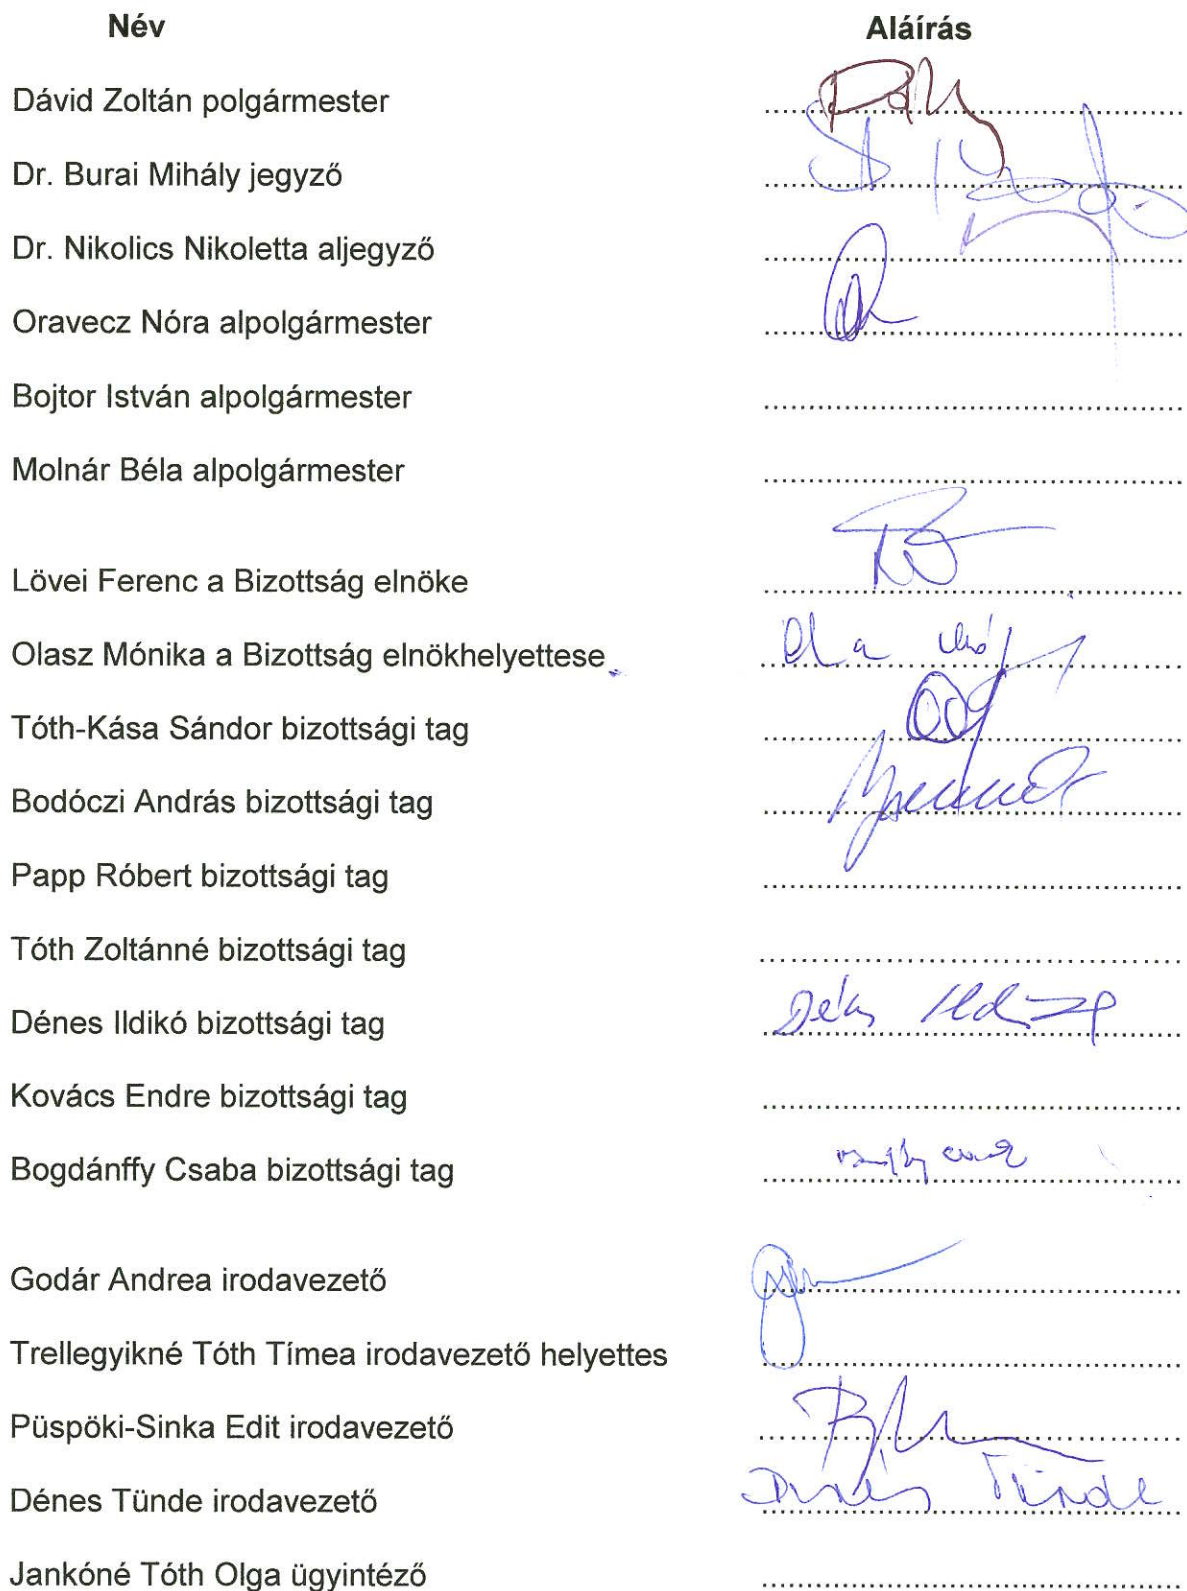 Név Aláírás
Dávid Zoltán polgármester
Dr. Burai Mihály jegyző
Dr. Nikolics Nikoletta aljegyző
Oravecz Nóra alpolgármester
Bojtor István alpolgármester
Molnár Béla alpolgármester
Lövei Ferenc a Bizottság elnöke
Olasz Mónika a Bizottság elnökhelyettese
Tóth-Kása Sándor bizottsági tag
Bodóczi András bizottsági tag
Papp Róbert bizottsági tag
Tóth Zoltánné bizottsági tag
Dénes Ildikó bizottsági tag
Kovács Endre bizottsági tag
Bogdánffy Csaba bizottsági tag
Godár Andrea irodavezető
Trellegyikné Tóth Tímea irodavezető helyettes
Püspöki-Sinka Edit irodavezető
Dénes Tünde irodavezető Dénes Tünde
Jankóné Tóth Olga ügyintéző